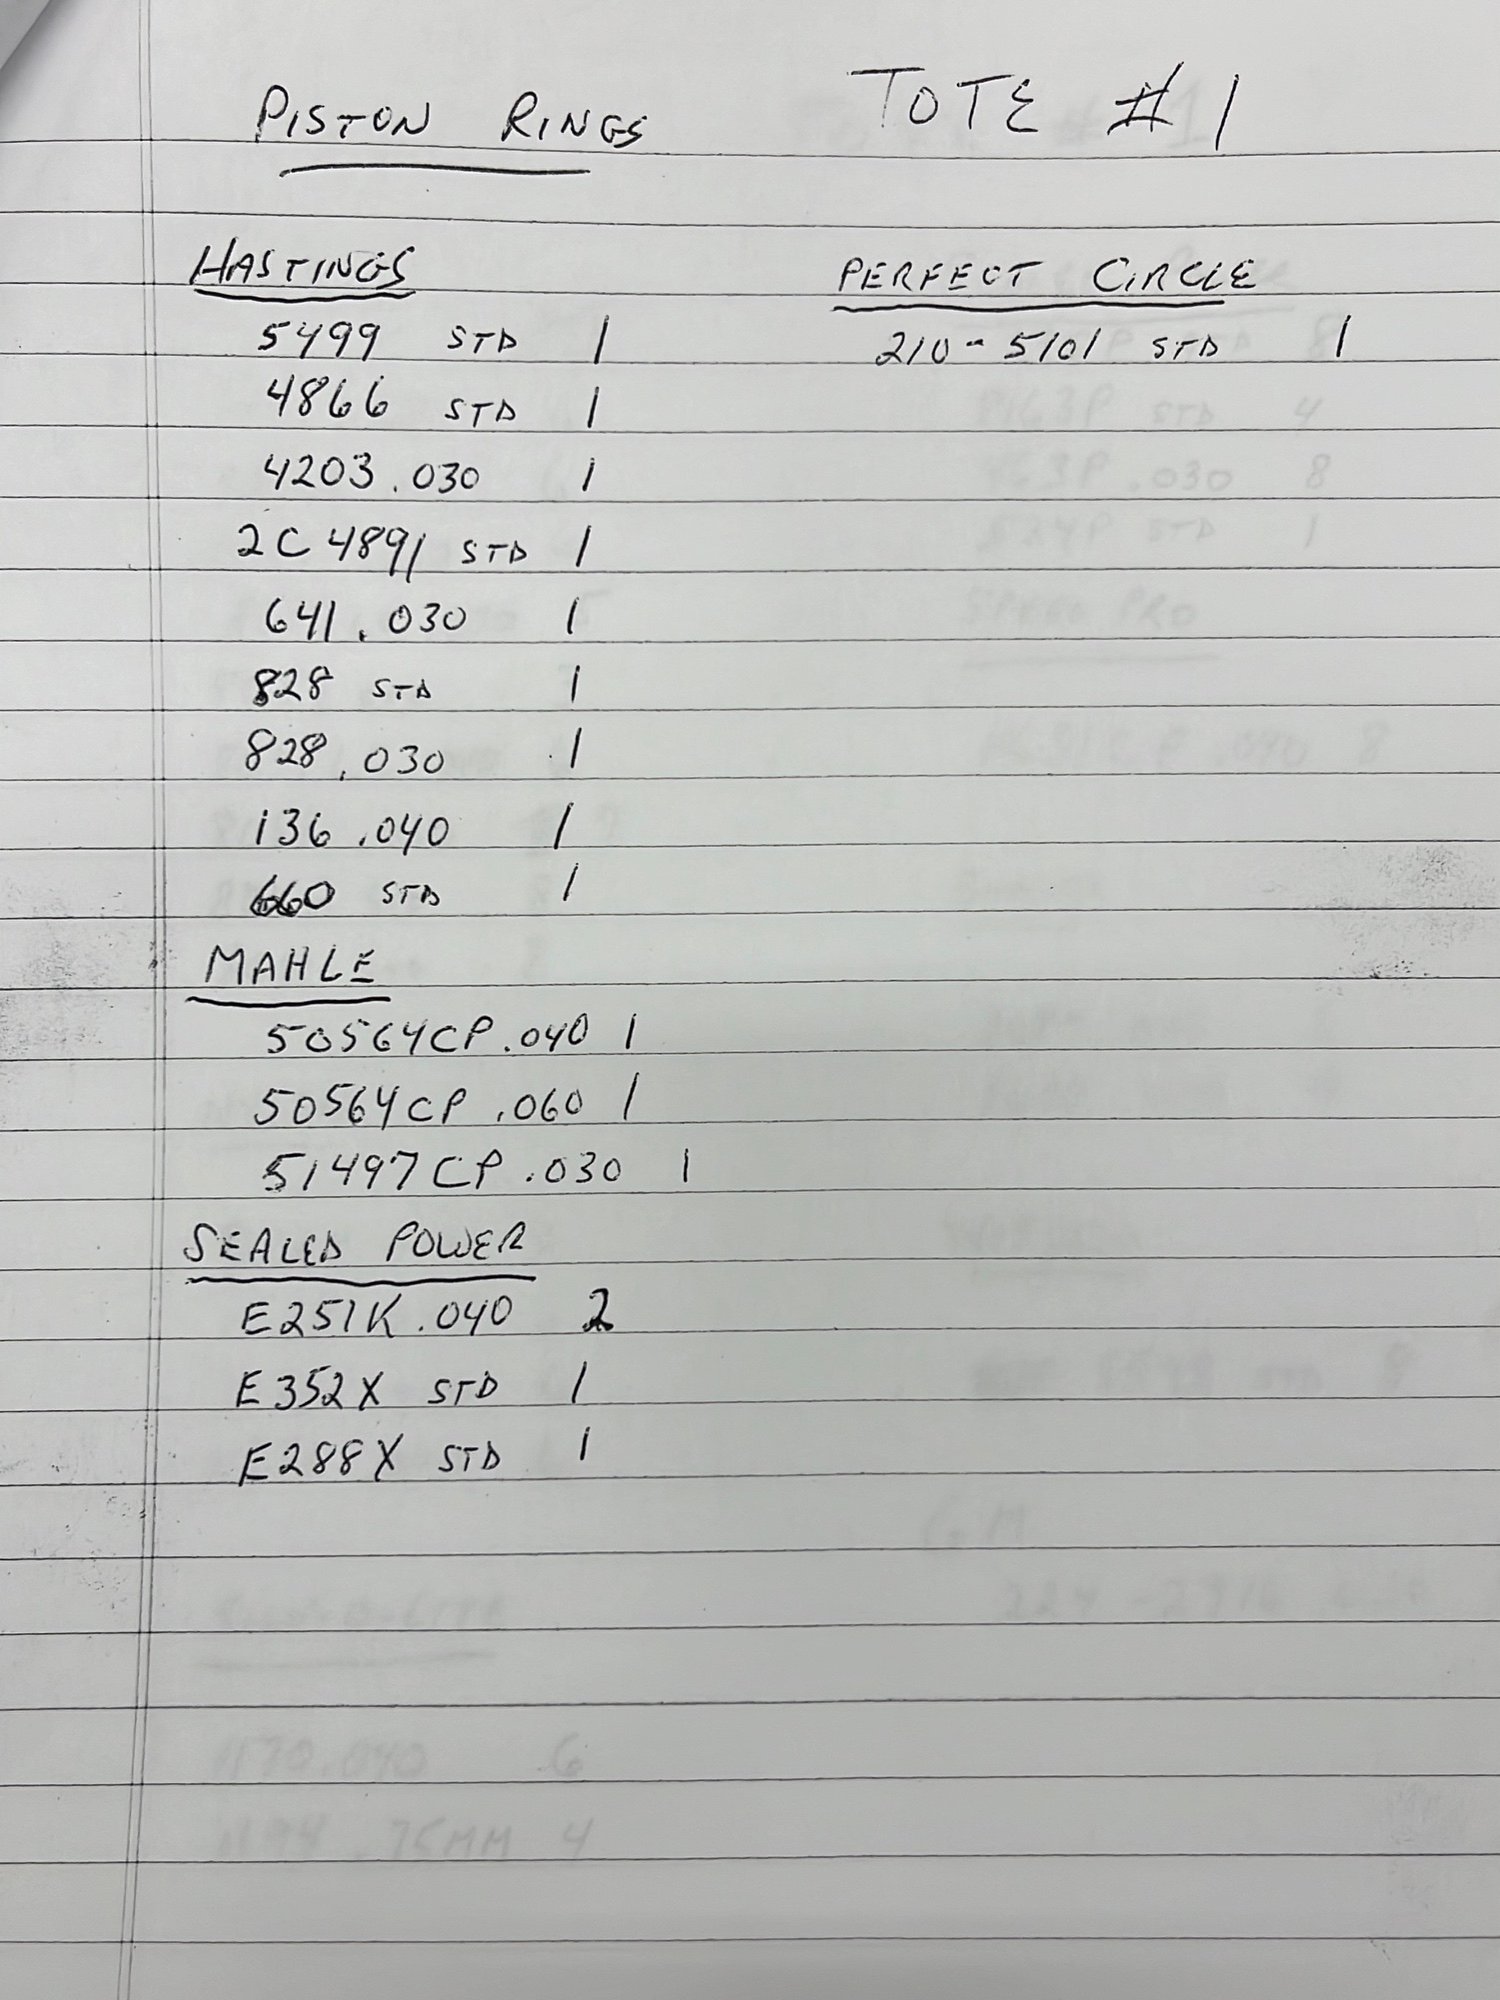 PISTON RINGS TOTE #1
HASTINGS
5499 STD 1
4866 STD 1
4203 .030 1
2C 4891 STD 1
641 .030 1
828 STD 1
828 .030 1
136 .040 1
660 STD 1
MAHLE
50564CP .040 1
50564CP .060 1
51497CP .030 1
SEALED POWER
E251K .040 2
E352X STD 1
E288X STD 1
PERFECT CIRCLE
210-5101 STD 1